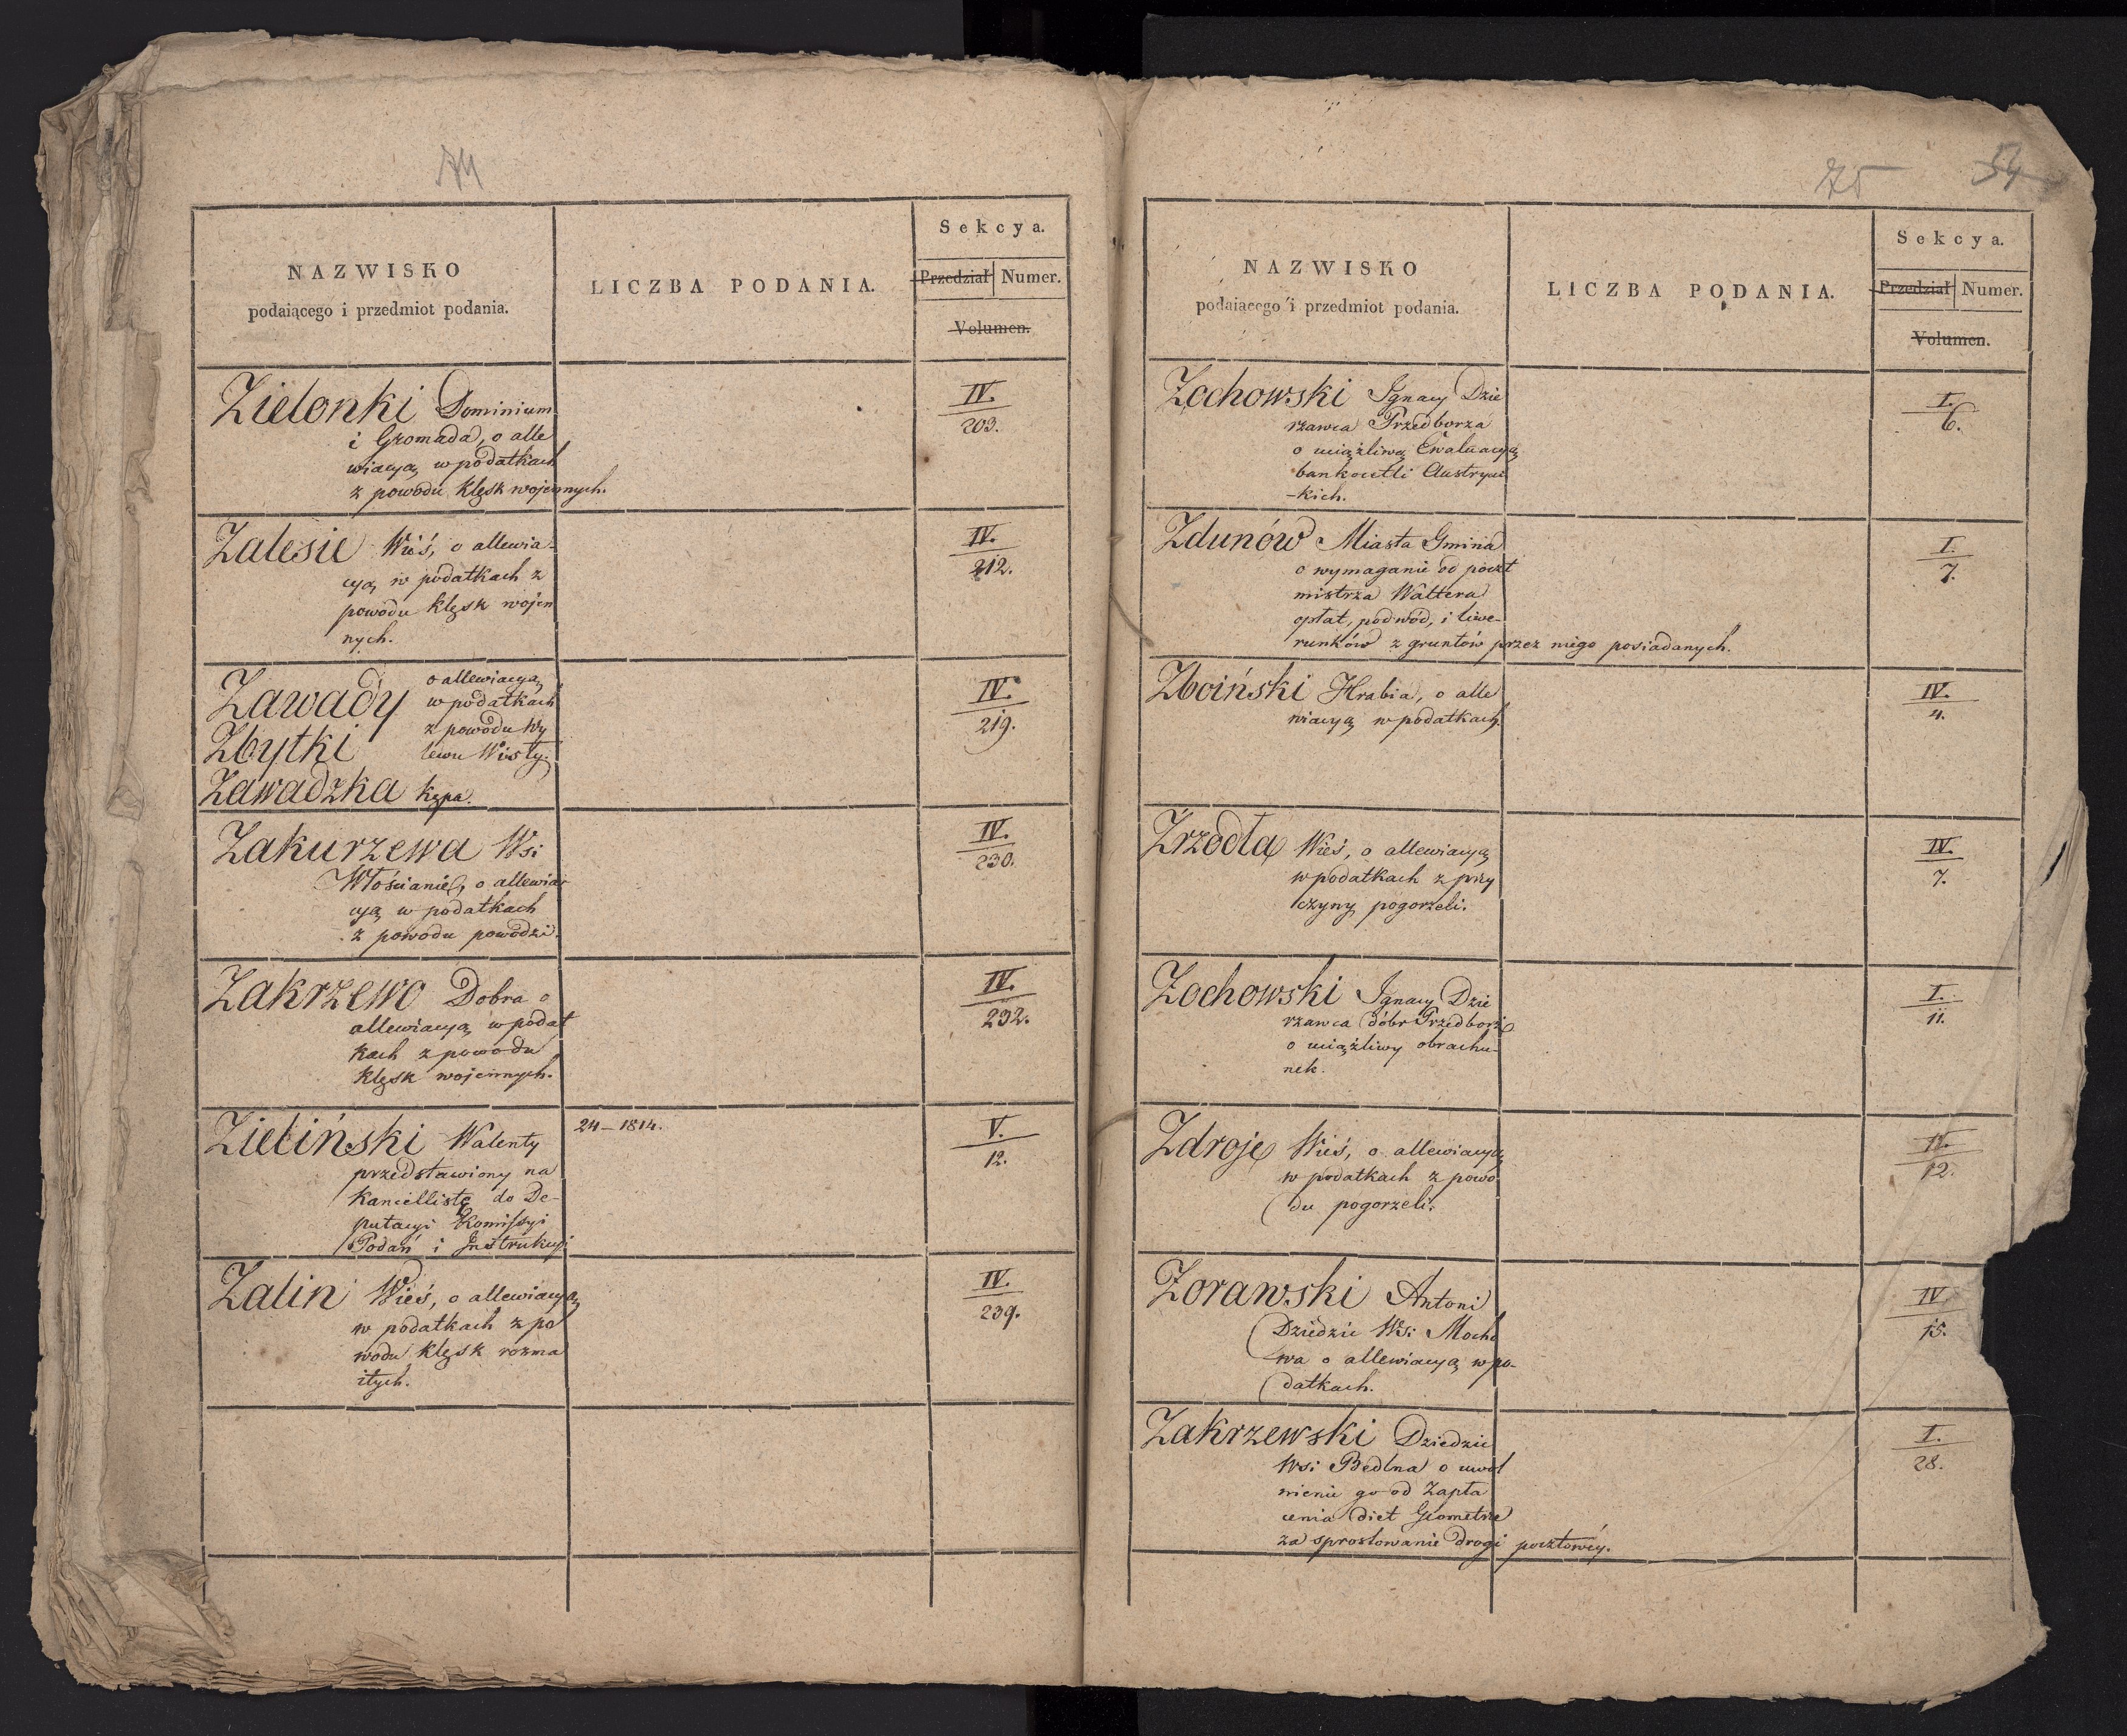 74
NAZWISKO
podaiącego i przedmiot podania.
LICZBA PODANIA.
Sekcya.
Przedział Numer.
Volumen.
Zielonki Dominium
i Gromada, o alle
wiacyą w podatkach
z powodu klęsk wojennych.
IV.
203.
Zalesie Wieś, o allewia-
cyą w podatkach z
powodu klęsk wojen
nych.
IV.
212.
Zawady o allewiacyą
w podatkach
z powodu wy
Zbytki lewu Wisły.
Zawadzka kępa.
IV.
219.
Zakurzewa Wsi
Włościanie, o allewia-
cyą w podatkach
z powodu powodzi.
IV.
230.
Zakrzewo Dobra o
allewiacyą w podat
kach z powodu
klęsk wojennych.
IV.
232.
Zieliński Walenty
przedstawiony na
Kancellistę do De-
putacyi Kommissyi
Podań i Instrukcyi
24 – 1814.
V.
12.
Zalin Wieś, o allewiacyą
w podatkach z po
wodu klęsk rozma
itych.
IV.
239.
75 54
NAZWISKO
podaiącego i przedmiot podania.
LICZBA PODANIA.
Sekcya.
Przedział Numer.
Volumen.
Zochowski Ignacy Dzie
rzawca Przedborza
o uciążliwą Ewaluacyą
bankocetli Austryac
-kich.
I.
6.
Zdunów Miasta Gmina
o wymaganie od poczt
mistrza Waltera
opłat, podwód, i liwe-
runków z gruntów przez niego posiadanych.
I.
7.
Zboiński Hrabia, o alle
wiacyą w podatkach.
IV.
4.
Zrzodła Wieś, o allewiacyą
w podatkach z przy
czyny pogorzeli.
IV.
7.
Zochowski Ignacy Dzie
rzawca dóbr Przedborze
o uciążliwy obrachu-
nek.
I.
11.
Zdroje Wieś, o allewiacyą
w podatkach z powo
du pogorzeli.
IV.
12.
Zorawski Antoni
Dziedzic Wsi Mocho
wa o allewiacyą w po-
datkach.
IV
15.
Zakrzewski Dziedzic
Wsi Bedlna o uwol
nienie go od zapła
cenia diet Geometrze
za sprostowanie drogi pocztowéy.
I.
28.